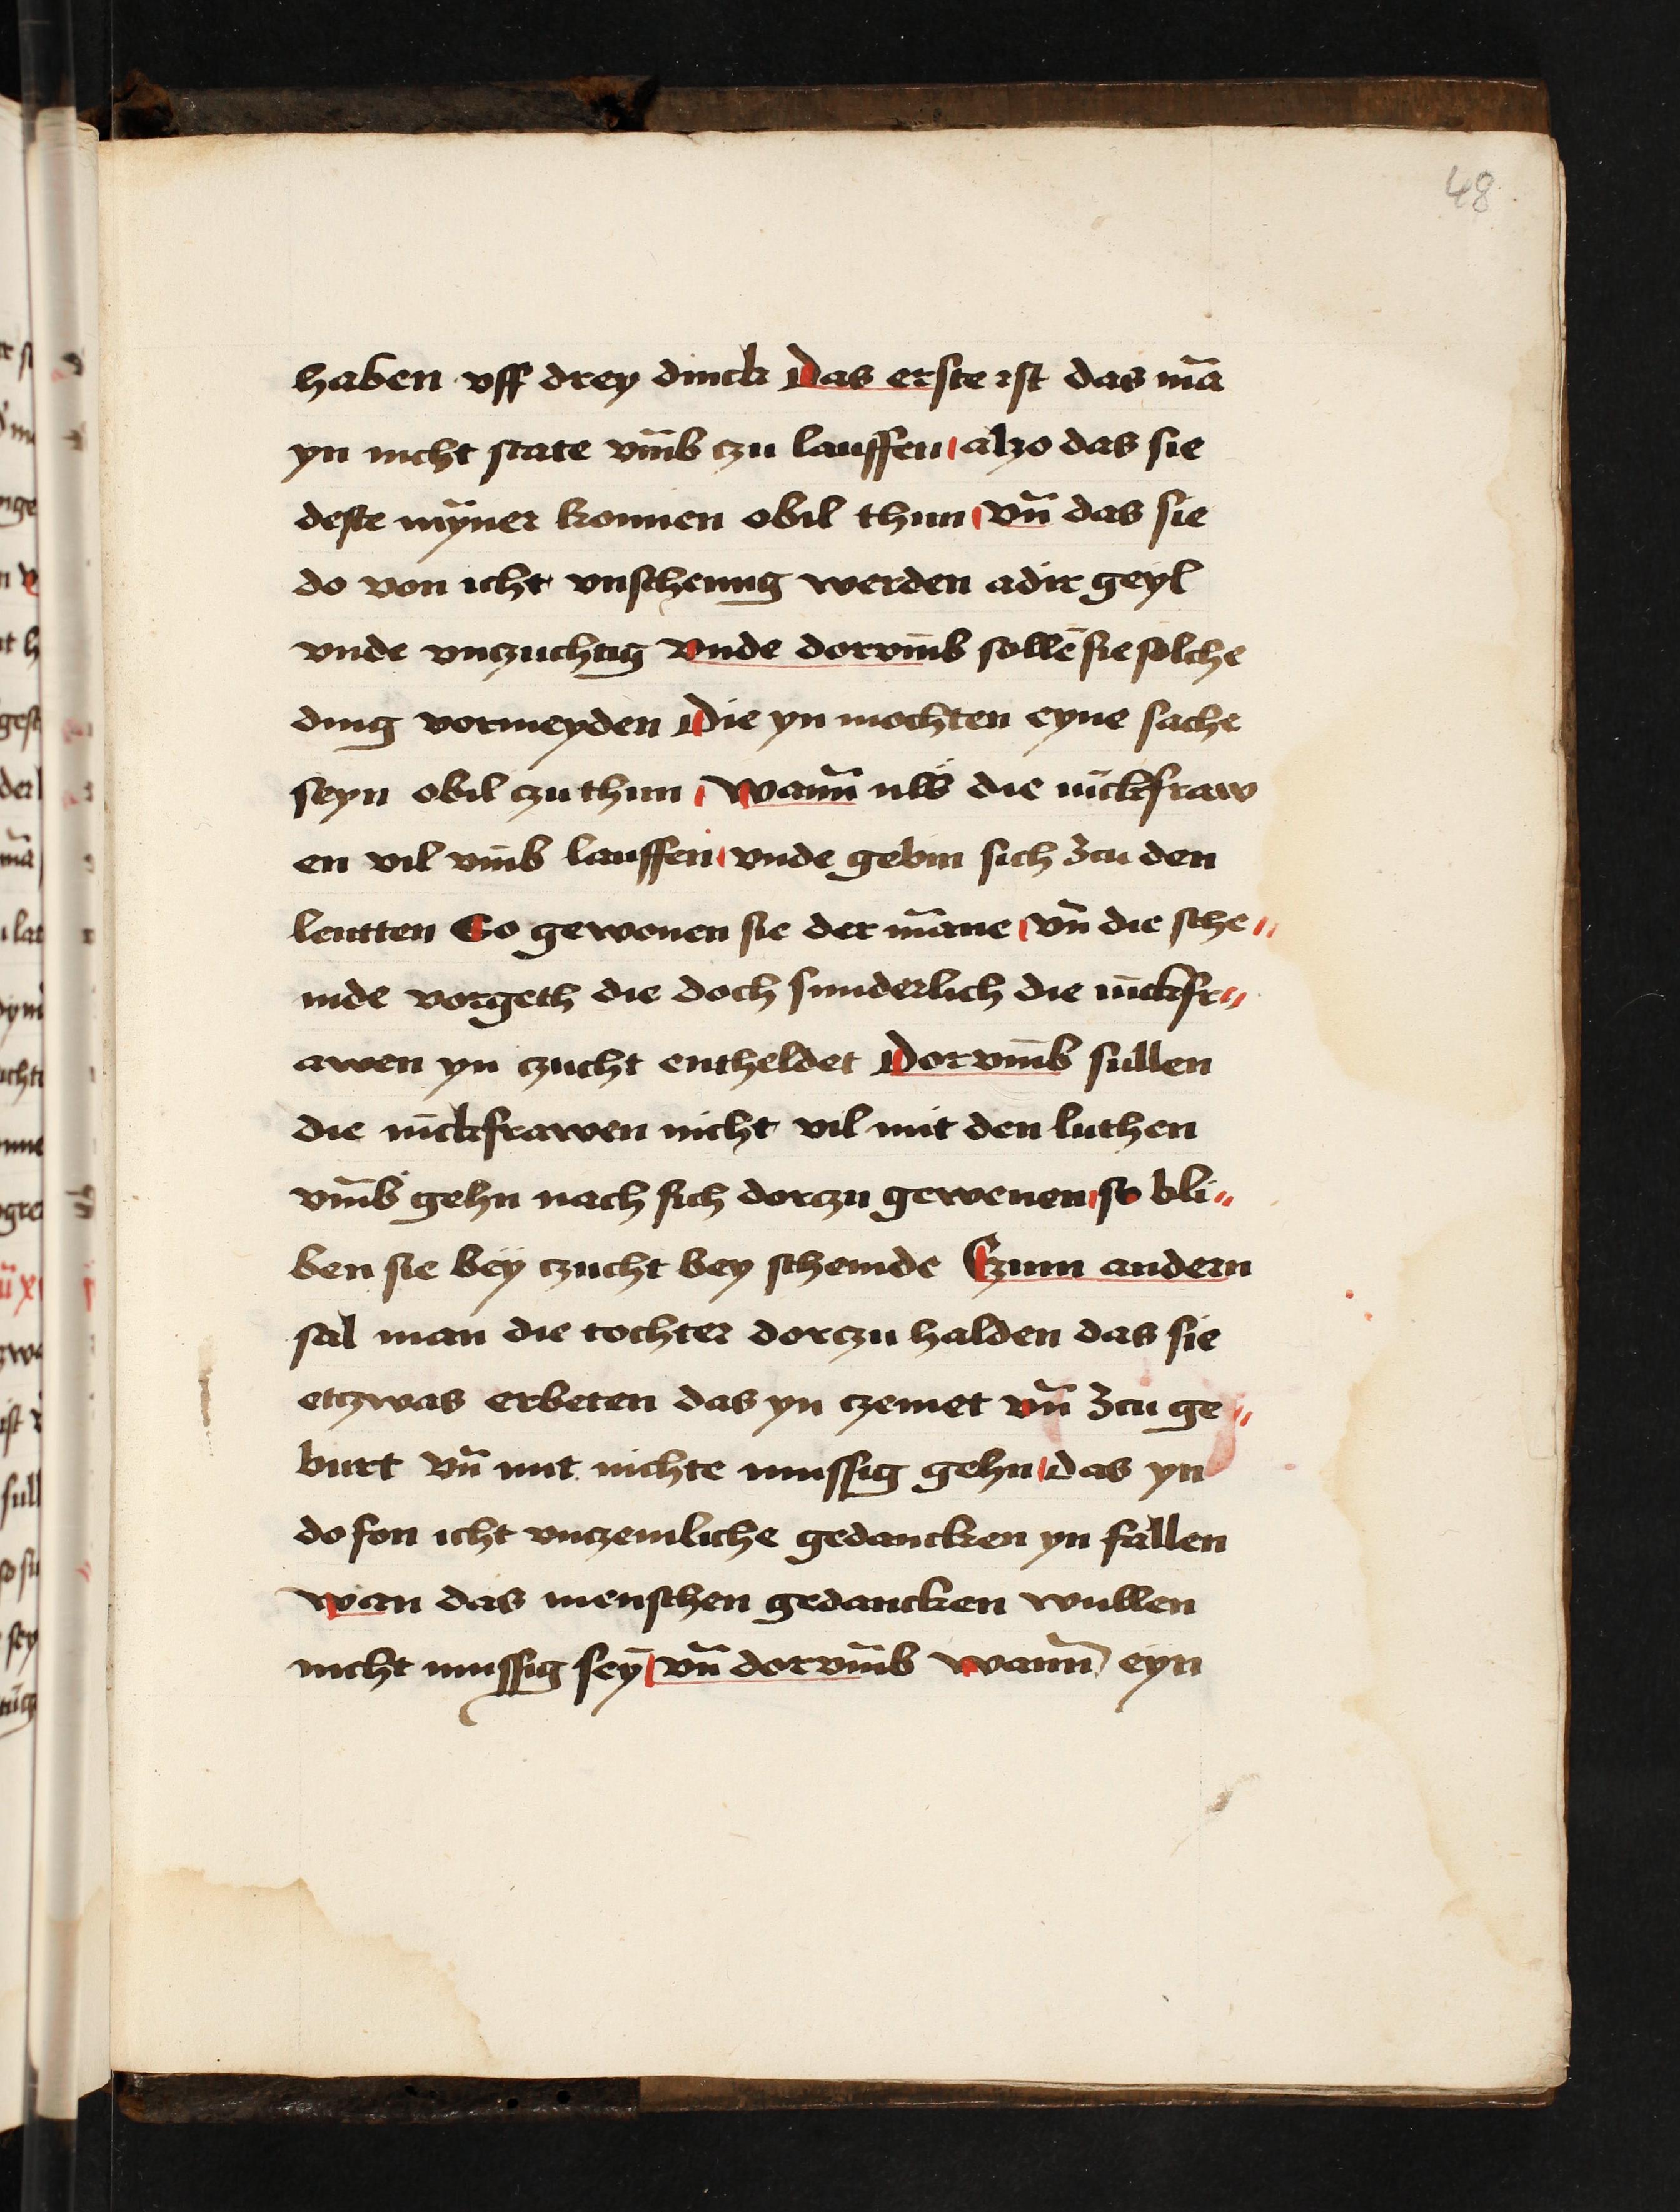 48.
haben vff drey dinck Das erste ist das mā
yn nicht state vm̄b czu lauffen alzo das sie
deste mÿner konnen obil thun vn̄ das sie
do von icht vnschemig werden adir geyl
vnde vnczuchtig Vnde dorvm̄b sollē sie solche
ding vormeyden Die yn mochten eyne sache
seyn obil czu thun Wann̄ die iūckfraw
en vil vm̄b lauffen vnde gebin sich Zcu den
leutten So gewonen sie der mān̄e vn̄ die sche〃
mde vorgeth die doch sunderlich die iūckfr〃
awen yn czucht entheldet Dorvm̄b sullen
die iūckfrawen nicht vil mit den luthen
vm̄b gehn nach sich dorczu gewenen so bli〃
ben sie bëy czucht bey schemde Czum andern
sal man die tochter dorczu halden das sie
etczwas erbeten das yn czemet vn̄ Zcu ge〃
burt vn̄ mit nichte mussig gehn das yn
do fon icht vnczemliche gedancken yn fallen
wan das menschen gedancken wullen
nicht mussig seȳ vn̄ dorvm̄b wann̄ eyn